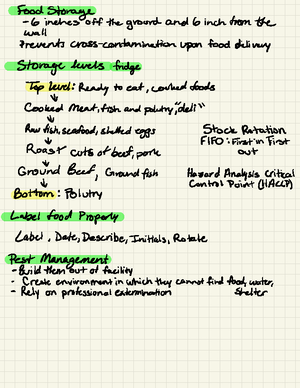 Food Storage
- 6 inches off the ground and 6 inch from the
wall
Prevents cross-contamination upon food delivery
Storage levels fridge
Top level: Ready to eat, cooked foods
Cooked Meat, fish and polutry, "deli"
Raw fish, seafood, shelled eggs
Roast cuts of beef, pork
Ground Beef, Ground fish
Bottom: Polutry
Stock Rotation
FIFO: First in First
out
Hazard Analysis Critical
Control Point (HACCP)
Label food Properly
Label, Date, Describe, Initials, Rotate
Pest Management
- Build them out of facility
- Create environment in which they cannot find food, water,
shelter
- Rely on professional extermination